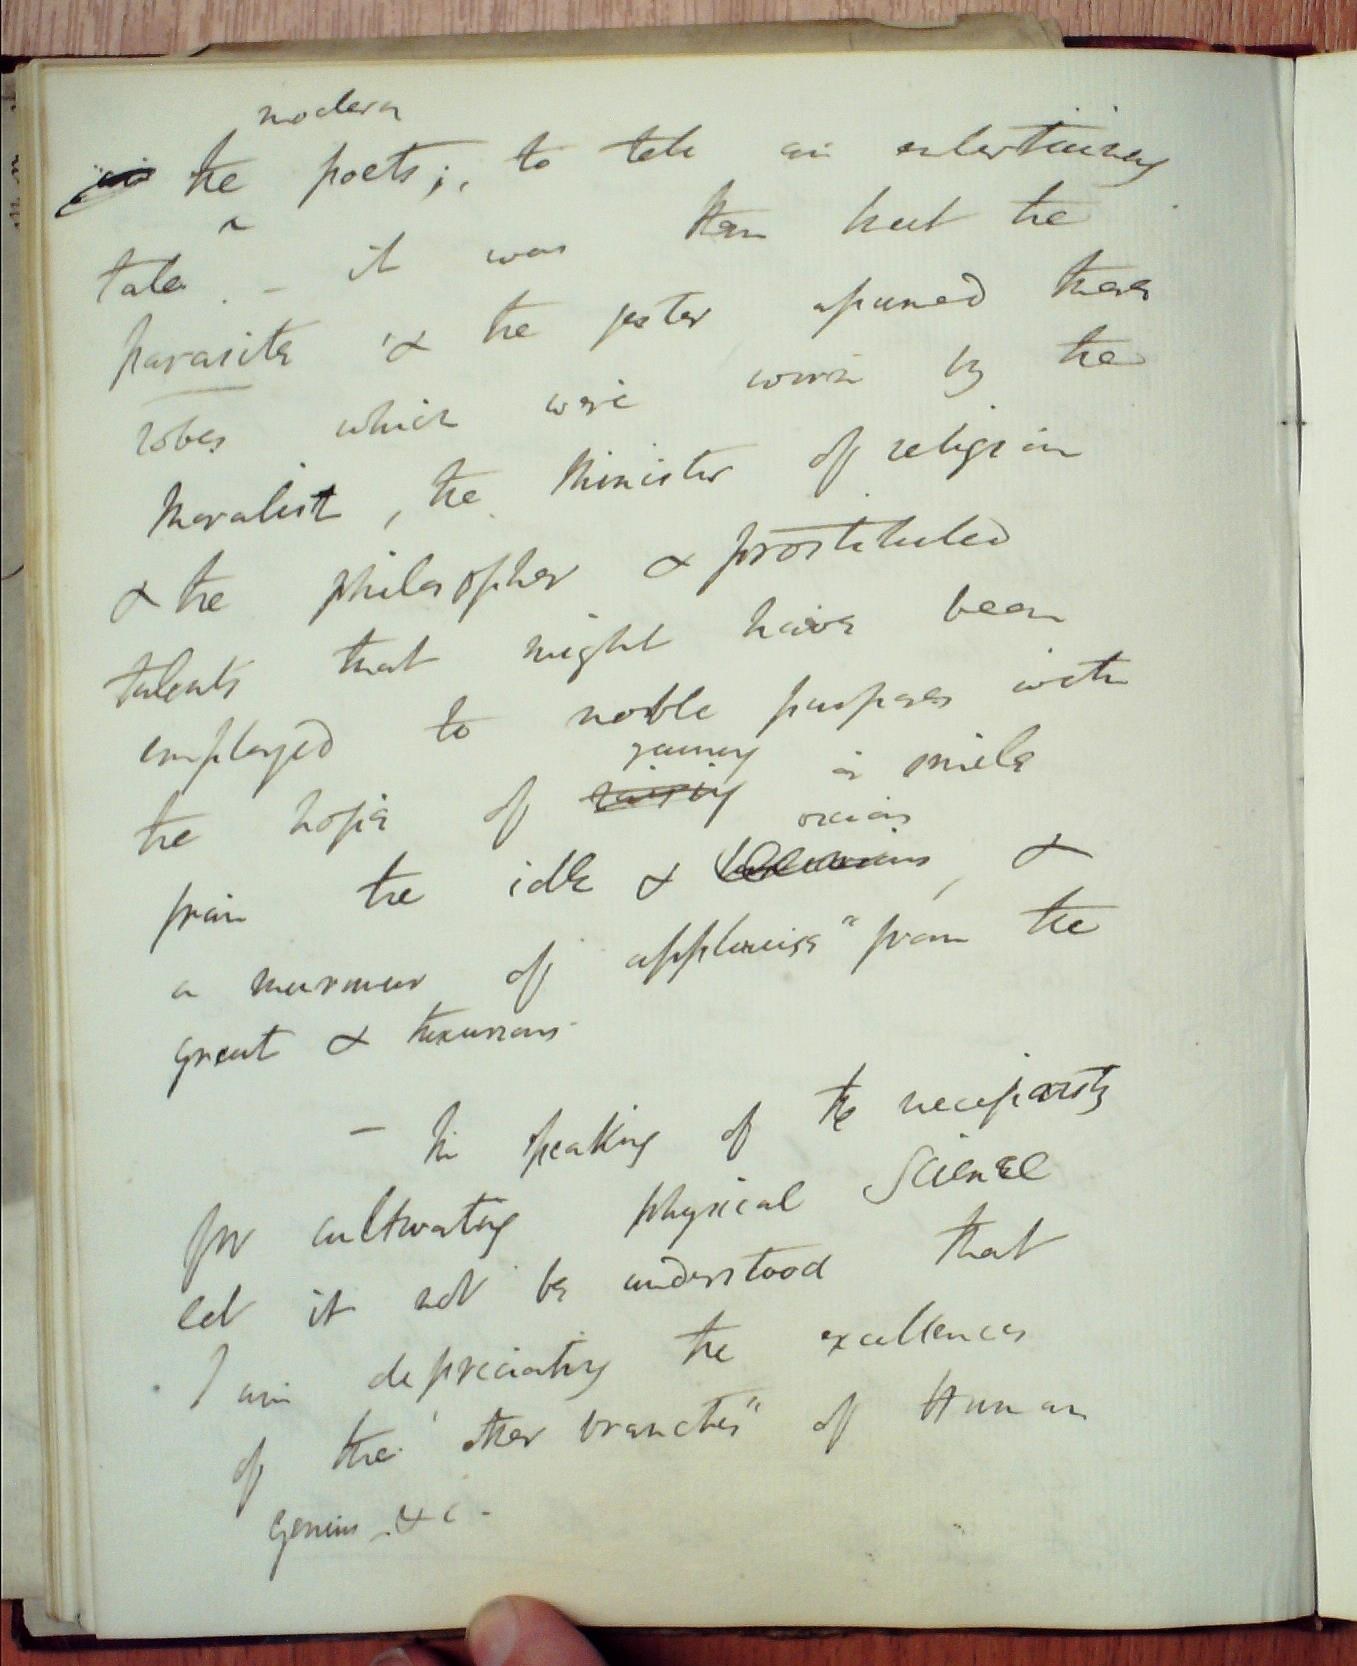 modern
the poets; to tell an entertaining
tale. - it was then that the
parasite & the jester assumed those
robes which were worn by the
Moralist, the Minister of religion
& the philosopher & prostituted
talents that might have been
employed to noble purposes with
gaining
the hope of raising a smile
from the idle & &
a murmur of applause" from the
great & luxurious.
- In speaking of the necessity
for cultivating physical Science
let it not be understood that
I am depreciating the excellences
of the "other branches" of Human
Genius &c -